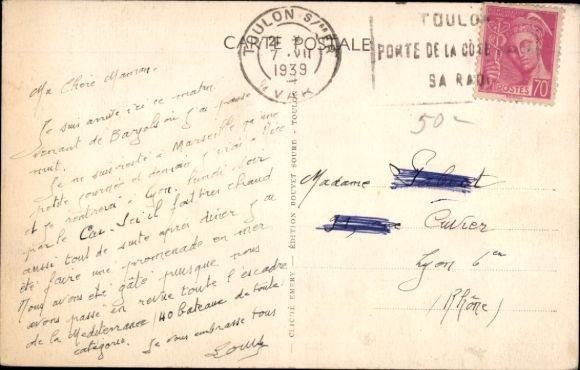 CARTE POSTALE
TOULON S/MER
7 VII
1939
VAR
TOULON
PORTE DE LA CÔTE
SA RADE
POSTES
70
50-
Ma Chère Maman.
Je suis arrivé ici ce matin
venant de Barjols où j'ai passé
nuit.
Je ne suis resté à Marseille qu'une
petite journée et demain j'irai
et je rentrerai à Lyon lundi soir
par le Car. Ici il fait très chaud
aussi tout de suite après dîner j'ai
été faire une promenade en mer
Nous avons été gâté puisque nous
avons passé en revue toute l'escadre
de la Méditerranée (40 bateaux de toute
catégorie. Je vous embrasse tous
Louly
CLICHÉ EMERY — ÉDITION BOUVET SOURD - TOULON
Madame
Cuvier
Lyon 6en
(Rhône)